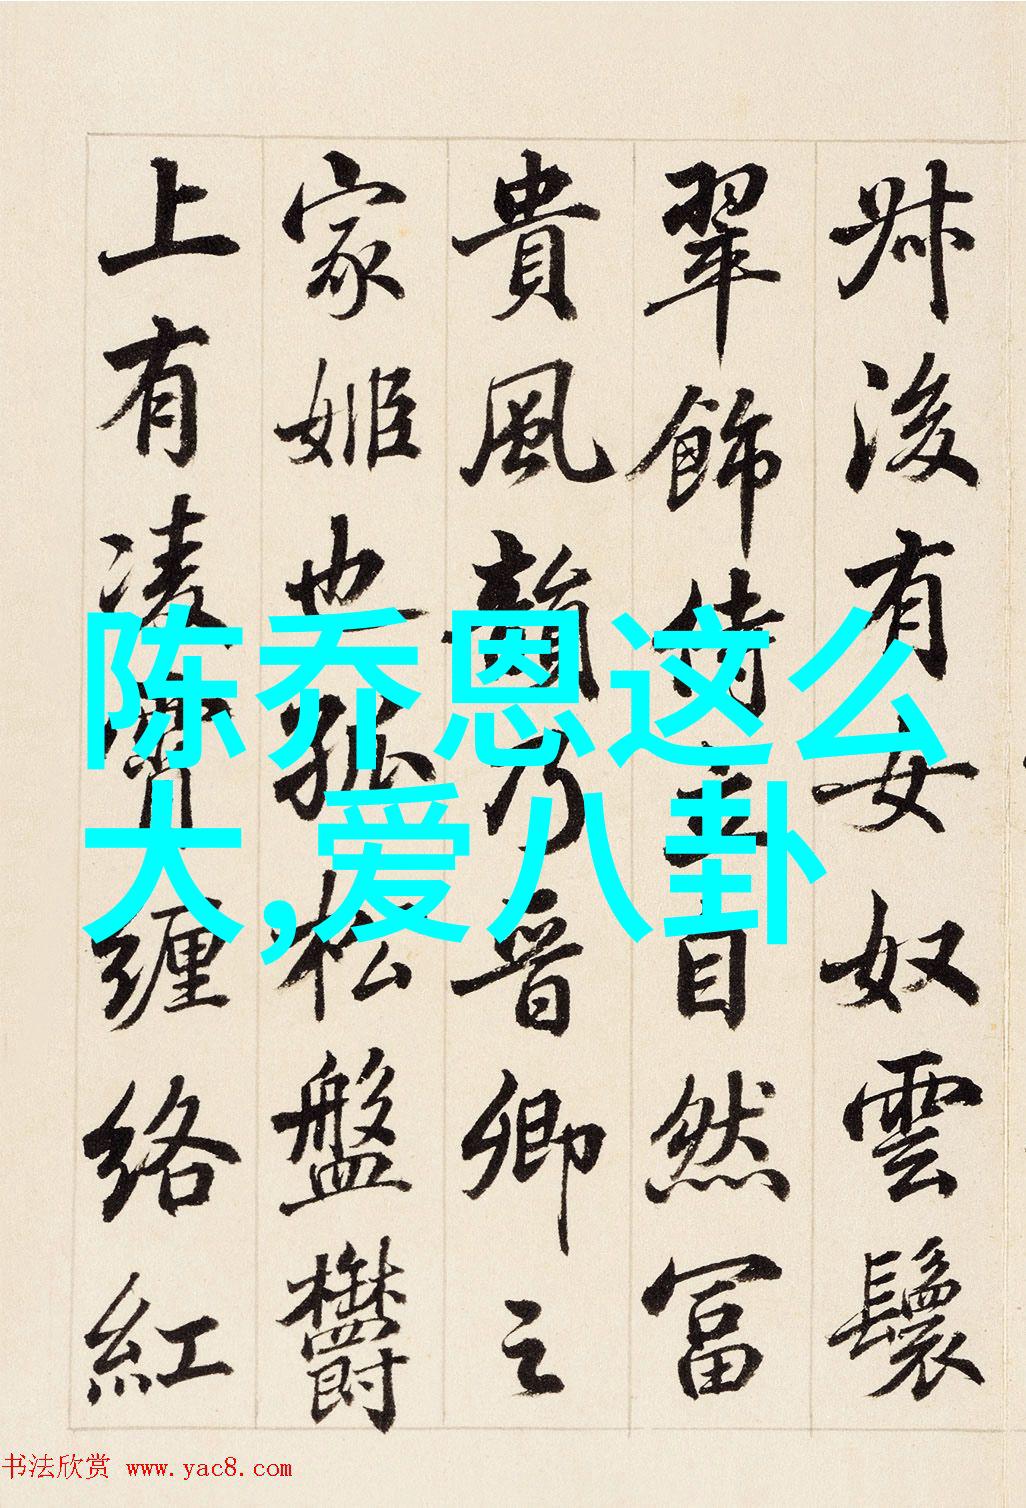 卌後有女奴雲鬟
翠飾侍立自然富
貴風韻乃晉卿之
家姬也孤松盤欝
上有凌霄纏絡紅
陈乔恩这么
大,爱八卦
书法欣赏 www.yac8.com